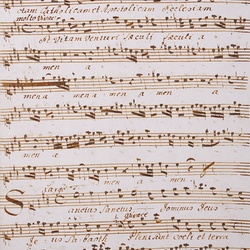 ctam Catholicam et Apostolicam Ecclesiam
molto vivace
Et Vitam Venturi Saeculi saeculi a
men a
men a men a men a
men a
men a
men
Largo
Sanctus Sanctus Dominus Deus
vivace
us Sabaoth Pleni sunt coeli et terra